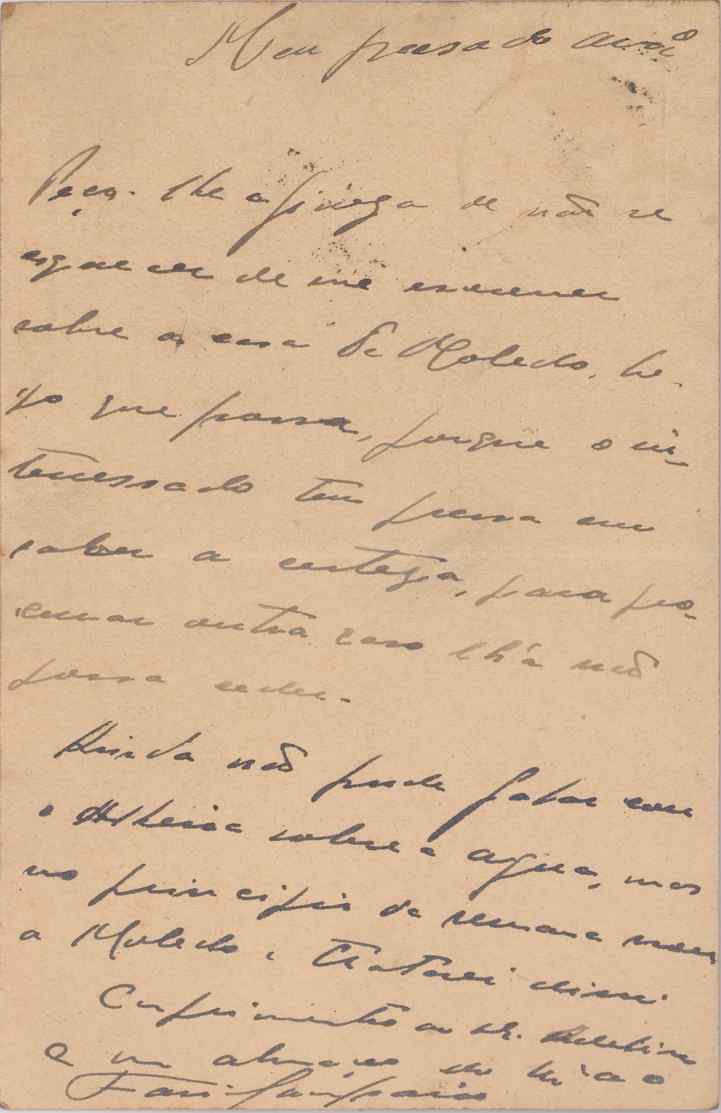 Meu presado avô
Peço-lhe a fineza de não se
esquecer de me escrever
sobre a casa de Moledo, lo-
go que possa, porque o in-
teressado tem pressa em
saber a certeza, para pro-
curar outra caso lh'a não
possa ceder.
Ainda não pude falar com
o sobre a agua, mas
no principio da semana vou
a Moledo e tratarei disso.
Cumprimentos ao Sr.
e um abraço do
Sampaio